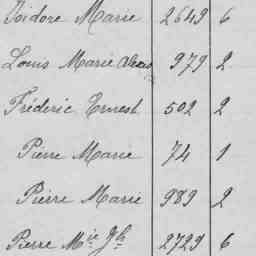 Isidore Marie 2649 6
Louis Marie 979 2
Fréderic Ernest 502 2
Pierre Marie 74 1
Pierre Marie 989 2
Pierre Mie Jh 2729 6